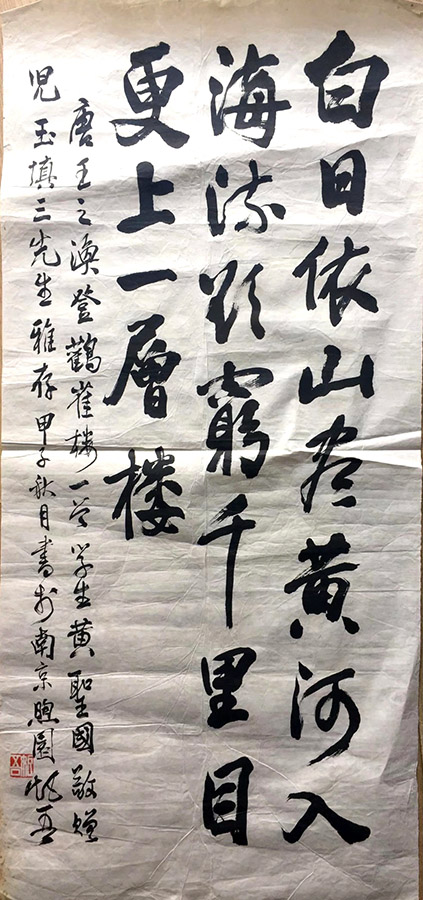 白日依山尽黄河入
海流欲窮千里目
更上一層楼
唐王之渙登鸛雀楼一首学生黄聖國敬贈
児玉填三先生雅存甲子秋月書於南京煦園怀吾